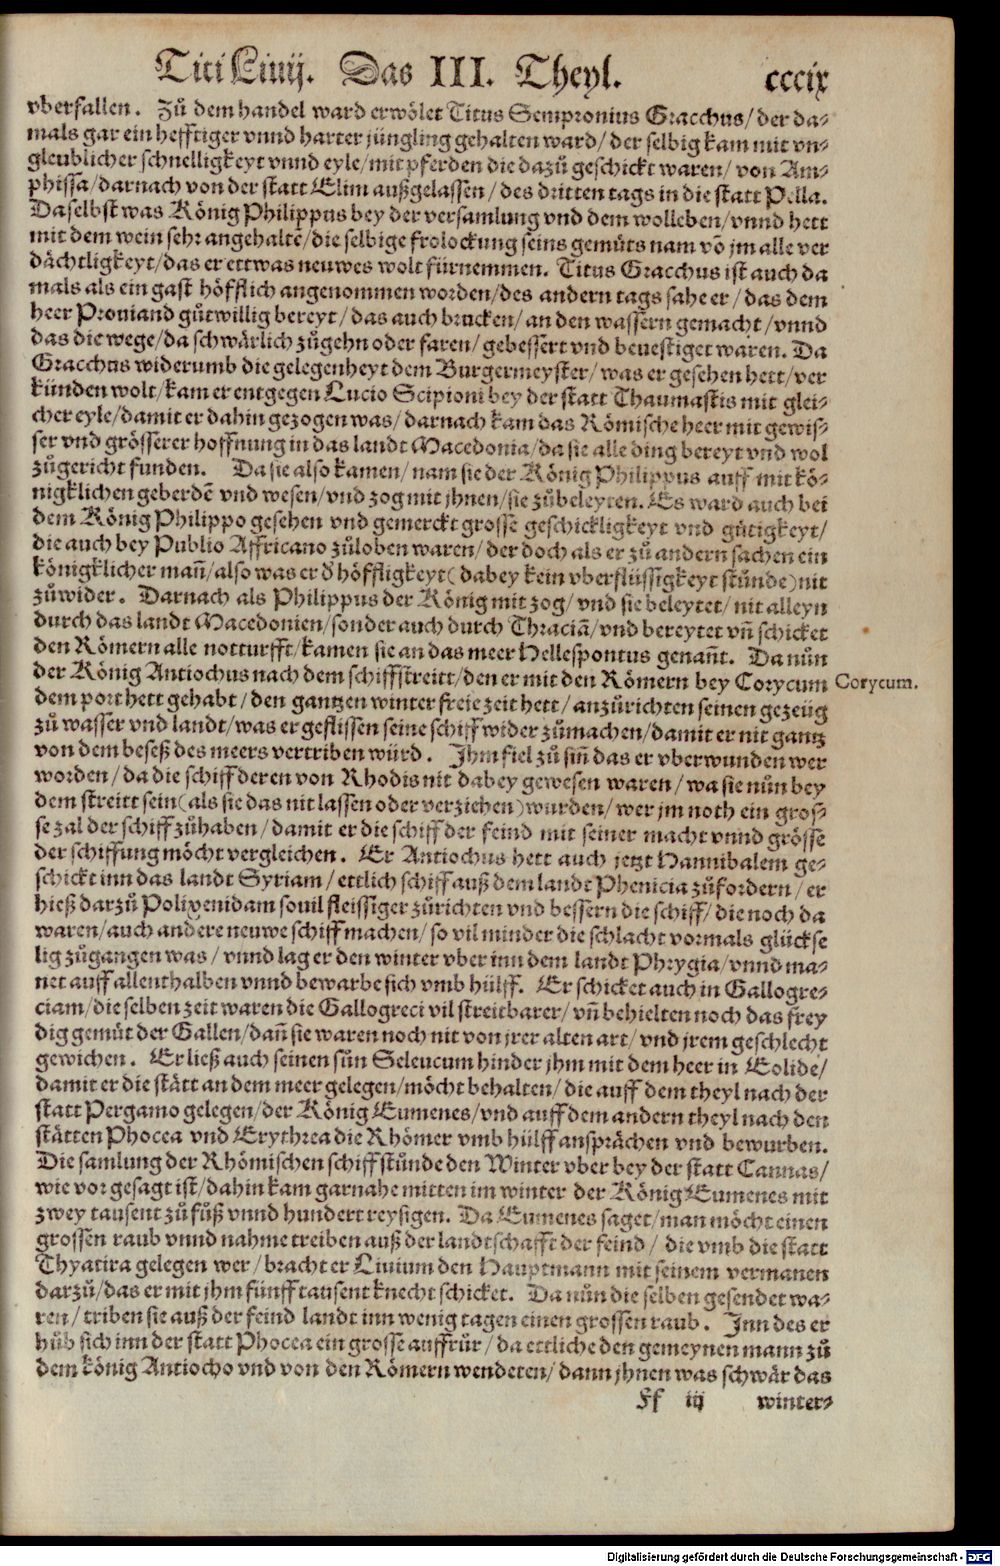 Titi Liuij. Das III. Theyl. cccix
vberfallen. Zů dem handel ward erwölet Titus Sempronius Gracchus/ der da⸗
mals gar ein hefftiger vnnd harter jüngling gehalten ward/ der selbig kam mit vn⸗
gleublicher schnelligkeyt vnnd eyle/ mit pferden die dazů geschickt waren/ von Am⸗
phissa/ darnach von der statt Elim außgelassen/ des dritten tags in die statt Pella.
Daselbst was König Philippus bey der versamlung vnd dem wolleben/ vnnd hett
mit dem wein sehr angehaltē/ die selbige frolockung seins gemüts nam vō jm alle ver
dächtligkeyt/ das er ettwas neuwes wolt fürnemmen. Titus Gracchus ist auch da
mals als ein gast höfflich angenommen worden/ des andern tags sahe er/ das dem
heer Prouiand gůtwillig bereyt/ das auch brucken/ an den wassern gemacht/ vnnd
das die wege/ da schwärlich zůgehn oder faren/ gebessert vnd beuestiget waren. Da
Gracchus widerumb die gelegenheyt dem Burgermeyster/ was er gesehen hett/ ver
künden wolt/ kam er entgegen Lucio Scipioni bey der statt Thaumastis mit glei⸗
cher eyle/ damit er dahin gezogen was/ darnach kam das Römische heer mit gewis⸗
ser vnd grösserer hoffnung in das landt Macedonia/ da sie alle ding bereyt vnd wol
zůgericht funden. Da sie also kamen/ nam sie der König Philippus auff mit kö⸗
nigklichen geberdē vnd wesen/ vnd zog mit jhnen/ sie zůbeleyten. Es ward auch bei
dem König Philippo gesehen vnd gemerckt grosse geschickligkeyt vnd gütigkeyt/
die auch bey Publio Affricano zůloben waren/ der doch als er zů andern sachen ein
königklicher mañ/ also was er d' höffligkeyt (dabey kein vberflüssigkeyt stůnde) nit
zůwider. Darnach als Philippus der König mit zog/ vnd sie beleytet/ nit alleyn
durch das landt Macedonien/ sonder auch durch Thraciā/ vnd bereytet vñ schicket
den Römern alle notturfft/ kamen sie an das meer Hellespontus genañt. Da nůn
der König Antiochus nach dem schiffstreitt/ den er mit den Römern bey Corycum
Corycum.
dem port hett gehabt/ den gantzen winter freie zeit hett/ anzůrichten seinen gezeüg
zů wasser vnd landt/ was er geflissen seine schiff wider zůmachen/ damit er nit gantz
von dem beseß des meers vertriben würd. Jhm fiel zů siñ das er vberwunden wer
worden/ da die schiff deren von Rhodis nit dabey gewesen waren/ wa sie nůn bey
dem streitt sein (als sie das nit lassen oder verziehen) wurden/ wer jm noch ein gros⸗
se zal der schiff zůhaben/ damit er die schiff der feind mit seiner macht vnnd grösse
der schiffung möcht vergleichen. Er Antiochus hett auch jetzt Hannibalem ge⸗
schickt inn das landt Syriam/ ettlich schiff auß dem landt Phenicia zůfordern/ er
hieß darzů Polixenidam souil fleissiger zůrichten vnd bessern die schiff/ die noch da
waren/ auch andere neuwe schiff machen/ so vil minder die schlacht vormals glückse
lig zůgangen was/ vnnd lag er den winter vber inn dem landt Phrygia/ vnnd ma⸗
net auff allenthalben vnnd bewarbe sich vmb hülff. Er schicket auch in Gallogre⸗
ciam/ die selben zeit waren die Gallogreci vil streitbarer/ vñ behielten noch das frey
dig gemüt der Gallen/ dañ sie waren noch nit von jrer alten art/ vnd jrem geschlecht
gewichen. Er ließ auch seinen sůn Seleucum hinder jhm mit dem heer in Eolide/
damit er die stätt an dem meer gelegen/ möcht behalten/ die auff dem theyl nach der
statt Pergamo gelegen/ der König Eumenes/ vnd auff dem andern theyl nach den
stätten Phocea vnd Erythrea die Rhömer vmb hülff ansprächen vnd bewurben.
Die samlung der Rhömischen schiff stůnde den Winter vber bey der statt Cannas/
wie vor gesagt ist/ dahin kam gar nahe mitten im winter der König Eumenes mit
zwey tausent zů fůß vnnd hundert reysigen. Da Eumenes saget/ man möcht einen
grossen raub vnnd nahme treiben auß der landtschafft der feind/ die vmb die statt
Thyatira gelegen wer/ bracht er Liuium den Hauptmann mit seinem vermanen
darzů/ das er mit jhm fünff tausent knecht schicket. Da nůn die selben gesendet wa⸗
ren/ triben sie auß der feind landt inn wenig tagen einen grossen raub. Inn des er
hůb sich inn der statt Phocea ein grosse auffrůr/ da ettliche den gemeynen mann zů
dem könig Antiocho vnd von den Römern wendeten/ dann jhnen was schwär das
Ff iij winter⸗
Digitalisierung gefördert durch die Deutsche Forschungsgemeinschaft - DFG